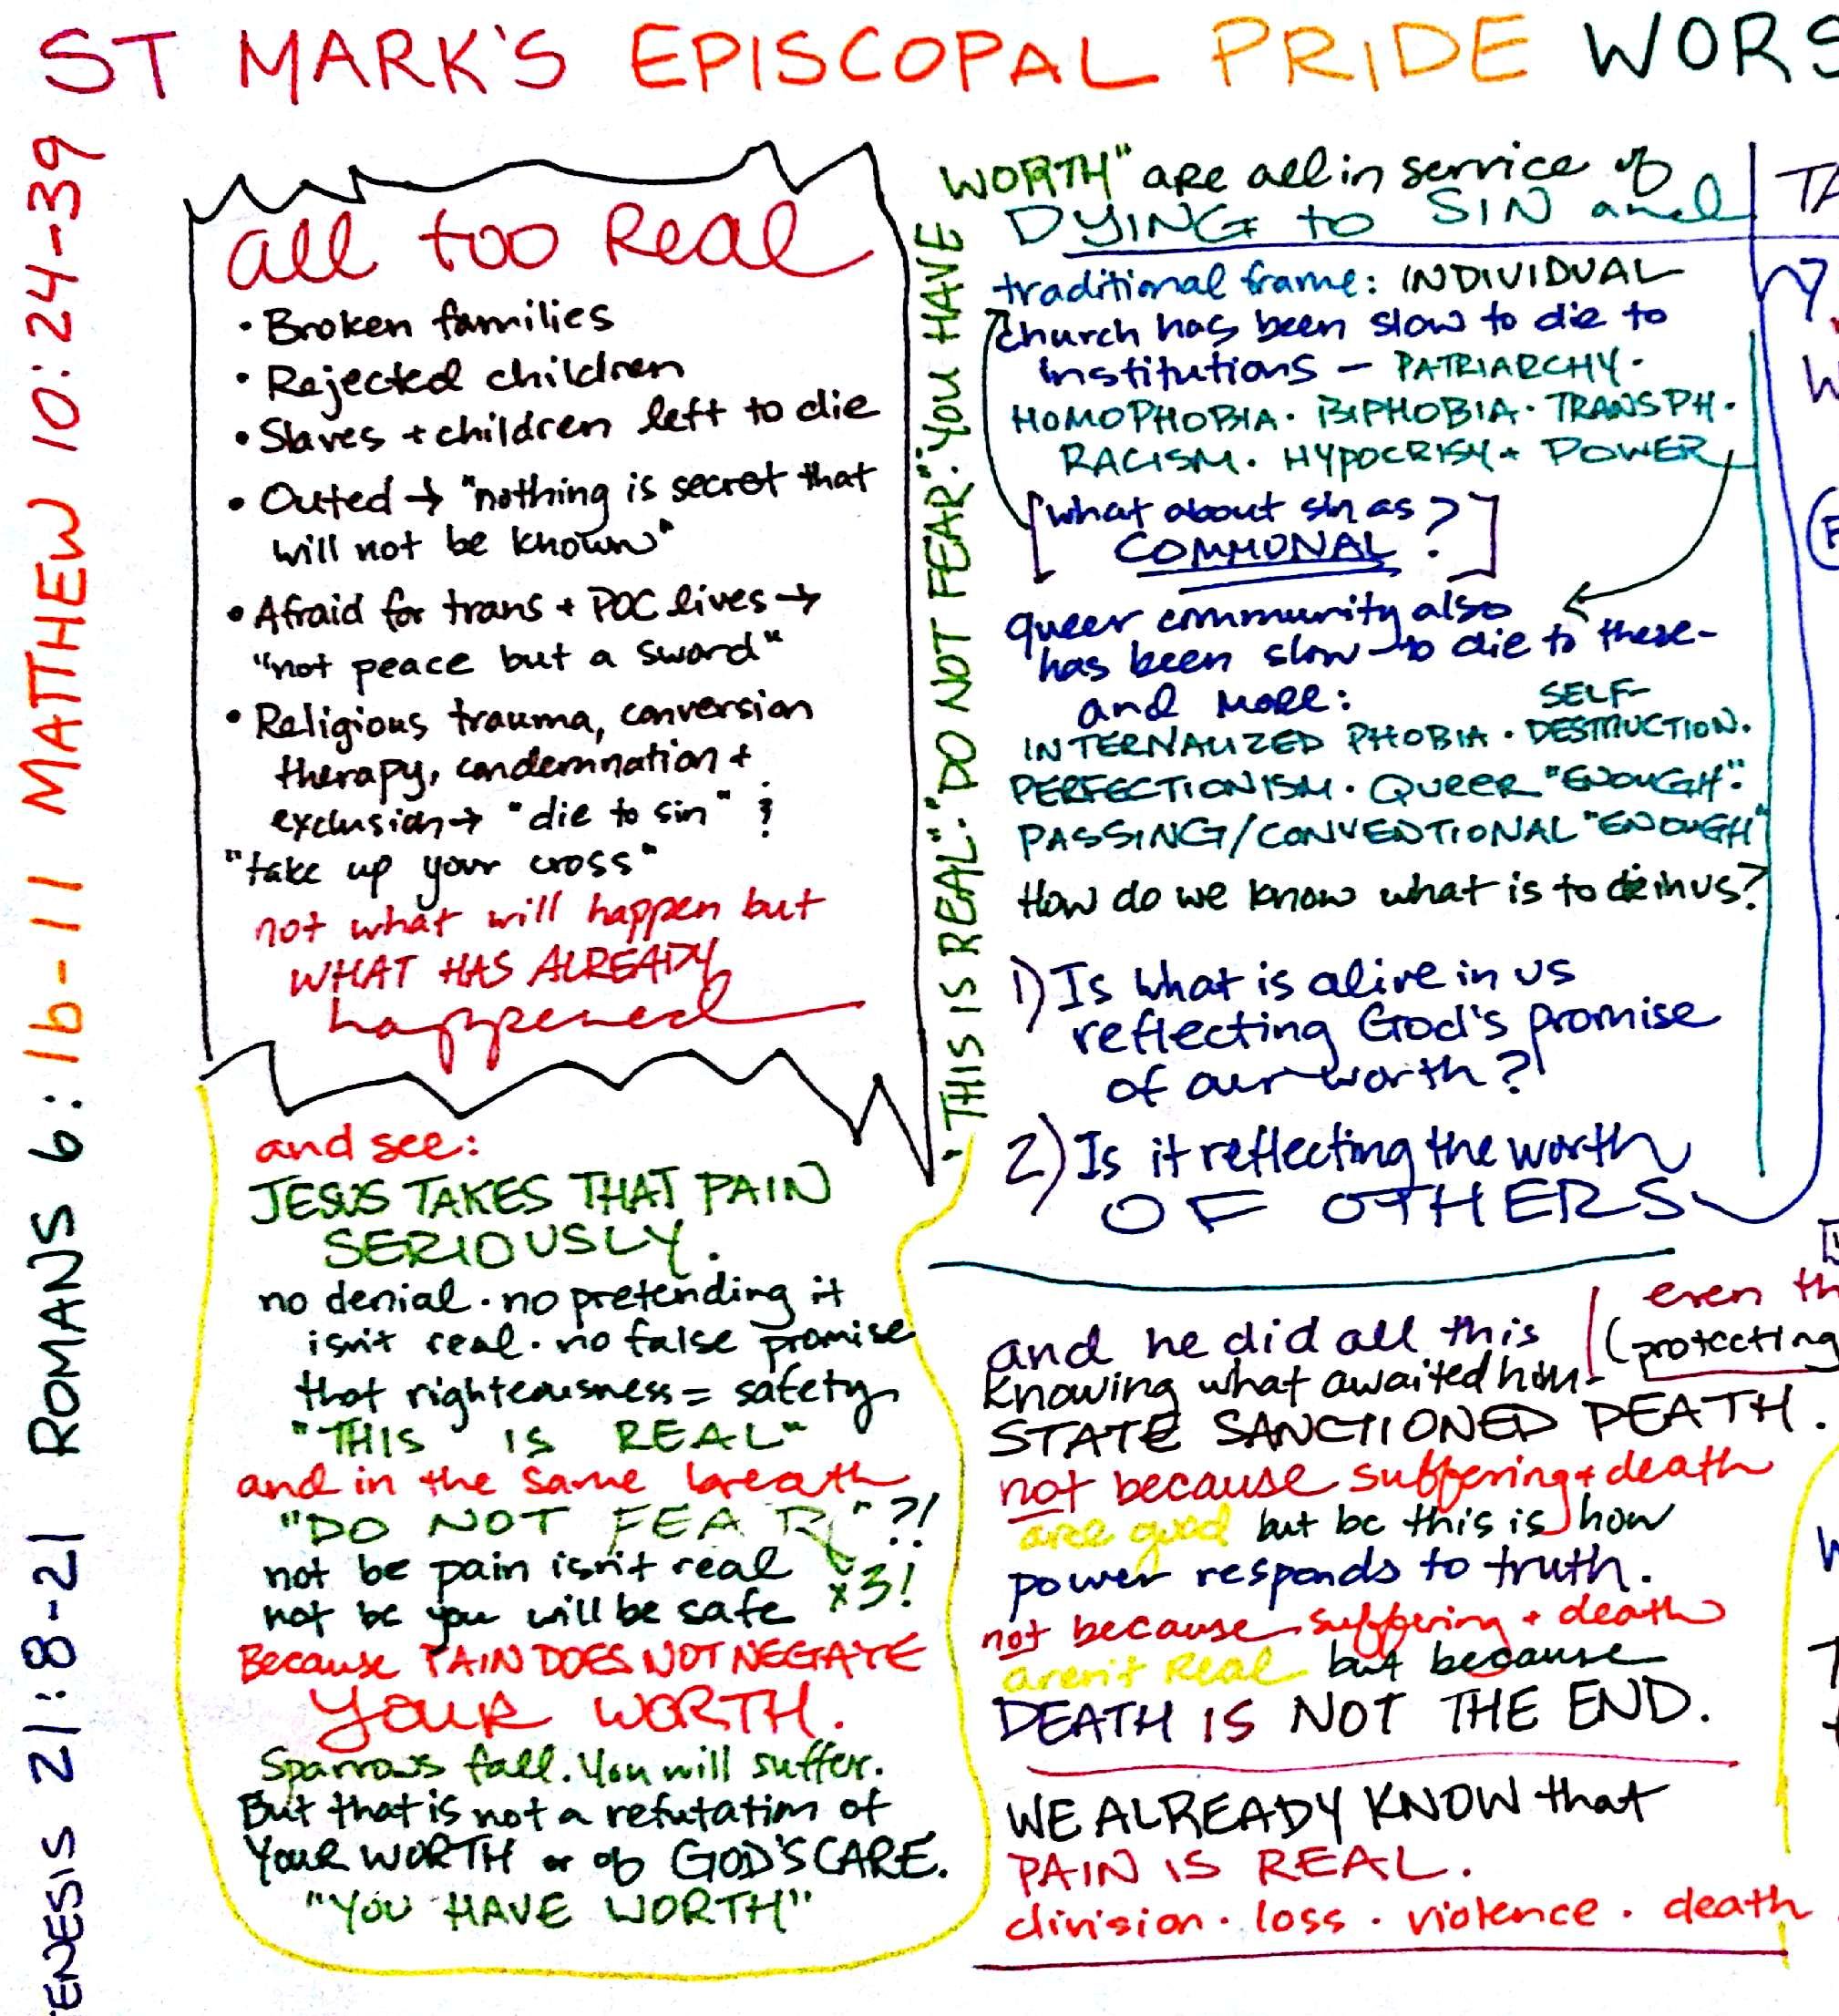 ST MARK'S EPISCOPAL PRIDE WORS
ENESIS 21:8-21 ROMANS 6:1b-11 MATTHEW 10:24-39
all too Real
• Broken families
• Rejected children
• Slaves + children left to die
• Outed → "nothing is secret that
will not be known"
• Afraid for trans + POC lives →
"not peace but a sword"
• Religious trauma, conversion
therapy, condemnation +
exclusion → "die to sin" ;
"take up your cross"
not what will happen but
WHAT HAS ALREADY
happened
and see:
JESUS TAKES THAT PAIN
SERIOUSLY.
no denial · no pretending it
isn't real · no false promise
that righteousness = safety
"THIS IS REAL"
and in the same breath
"DO NOT FEAR" ?!
x3!
not bc pain isn't real
not bc you will be safe
Because PAIN DOES NOT NEGATE
YOUR WORTH.
Sparrows fall. You will suffer.
But that is not a refutation of
YOUR WORTH or of GOD'S CARE.
"YOU HAVE WORTH"
"THIS IS REAL": "DO NOT FEAR": "YOU HAVE
WORTH" are all in service of
DYING to SIN and
traditional frame: INDIVIDUAL
church has been slow to die to
institutions — PATRIARCHY ·
HOMOPHOBIA · BIPHOBIA · TRANSPH ·
RACISM · HYPOCRISY + POWER
[what about sin as
COMMUNAL?]
queer community also
has been slow to die to these-
and more:
INTERNALIZED PHOBIA · SELF-DESTRUCTION ·
PERFECTIONISM · QUEER "ENOUGH" ·
PASSING/CONVENTIONAL "ENOUGH"
How do we know what is to die in us?
1) Is what is alive in us
reflecting God's promise
of our worth?
2) Is it reflecting the worth
OF OTHERS
and he did all this
knowing what awaited him-
STATE SANCTIONED DEATH.
even th
(protecting
not because suffering + death
are good but bc this is how
power responds to truth.
not because suffering + death
aren't Real but because
DEATH IS NOT THE END.
WE ALREADY KNOW that
PAIN IS REAL.
division · loss · violence · death
TA
W